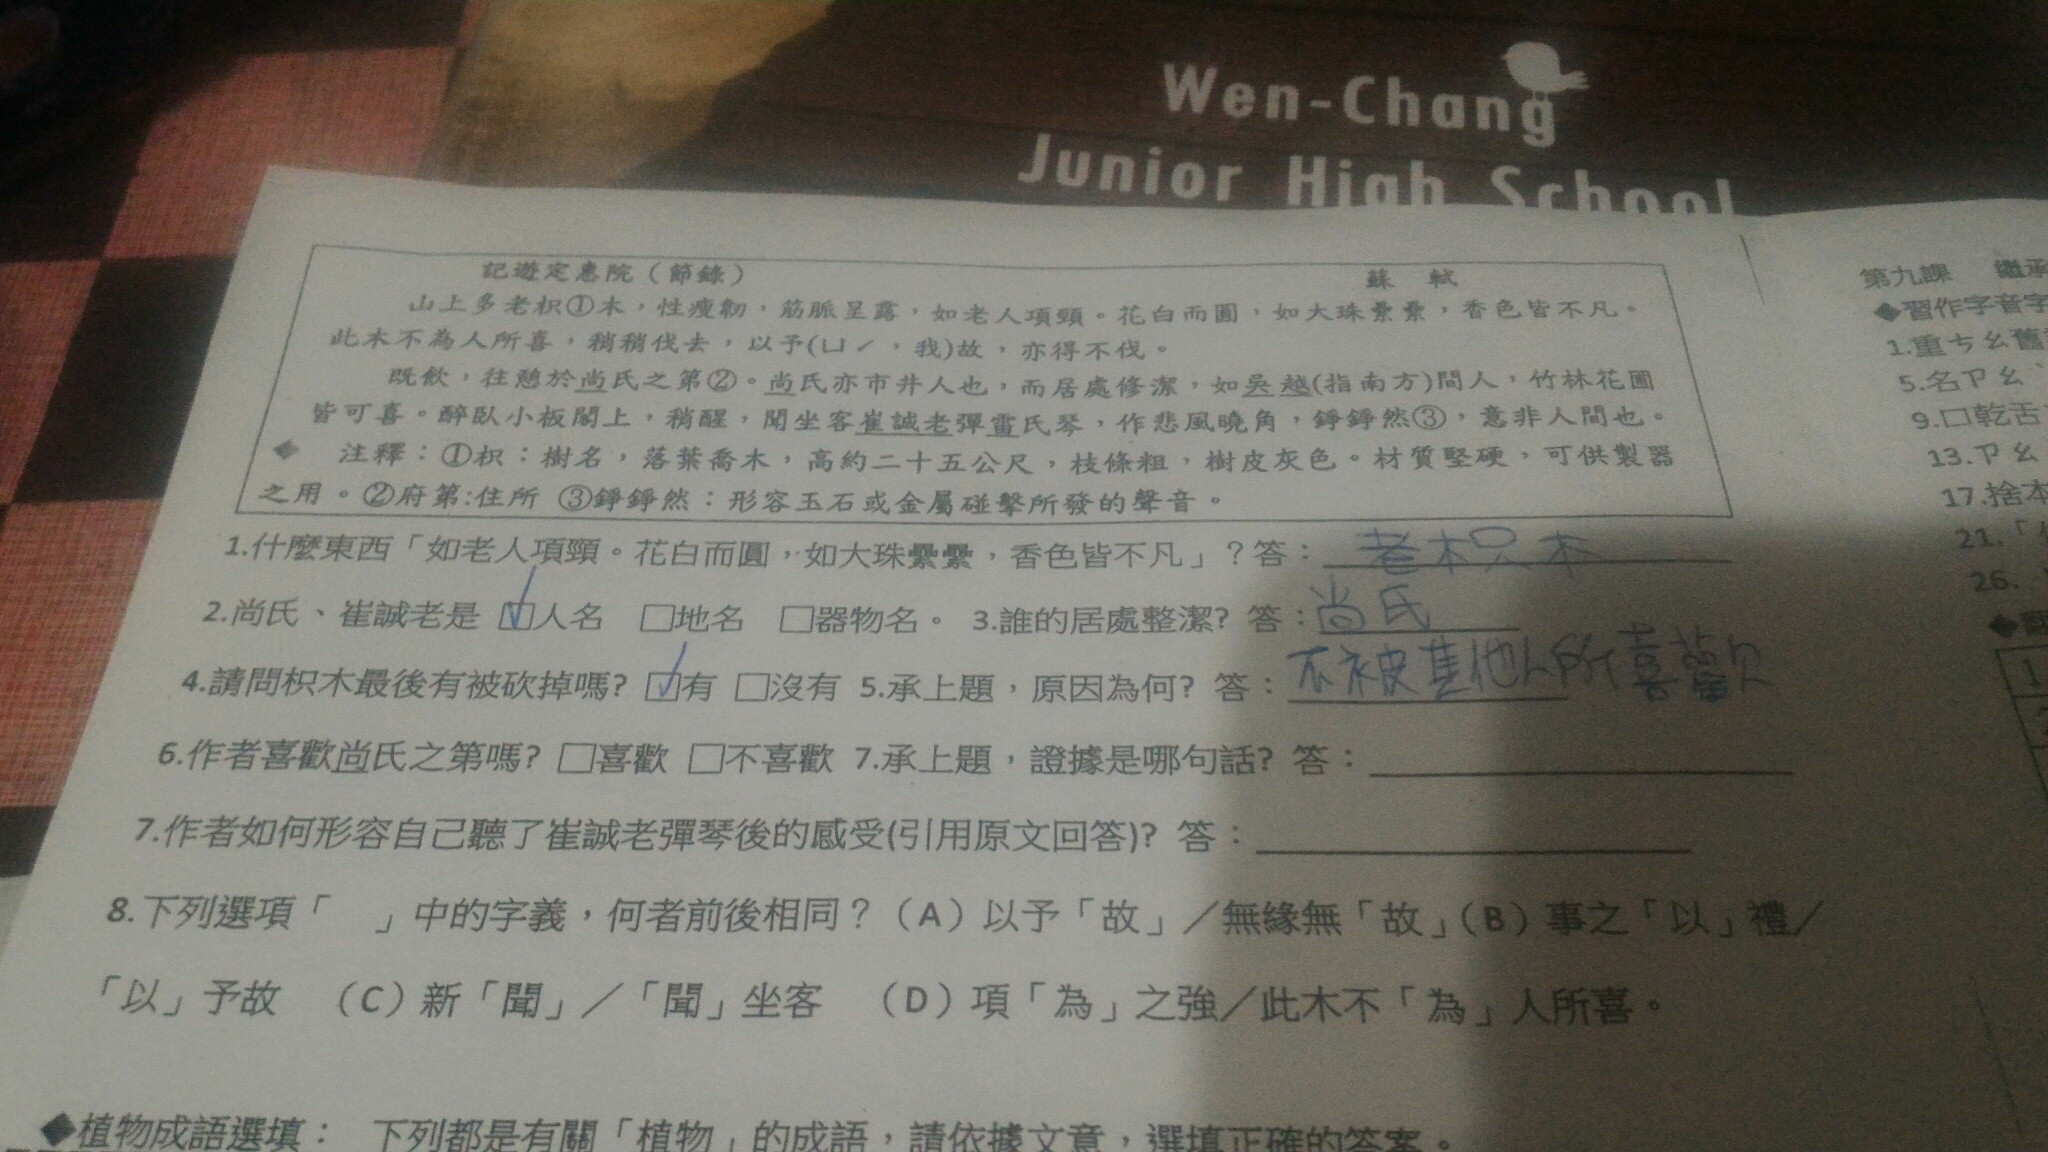 Wen-Chang
Junior High School
記遊定惠院（節錄） 蘇 軾
山上多老枳①木，性瘦韌，筋脈呈露，如老人項頸。花白而圓，如大珠纍纍，香色皆不凡。
此木不為人所喜，稍稍伐去，以予(ㄩˊ，我)故，亦得不伐。
既飲，往憩於尚氏之第②。尚氏亦市井人也，而居處修潔，如吳越(指南方)間人，竹林花圃
皆可喜。醉臥小板閣上，稍醒，聞坐客崔誠老彈雷氏琴，作悲風曉角，錚錚然③，意非人間也。
◆ 注釋：①枳：樹名，落葉喬木，高約二十五公尺，枝條粗，樹皮灰色。材質堅硬，可供製器
之用。②府第:住所 ③錚錚然：形容玉石或金屬碰擊所發的聲音。
1.什麼東西「如老人項頸。花白而圓，如大珠纍纍，香色皆不凡」？答：老枳木
2.尚氏、崔誠老是 ☑人名 □地名 □器物名。 3.誰的居處整潔? 答：尚氏
4.請問枳木最後有被砍掉嗎? ☑有 □沒有 5.承上題，原因為何? 答：不被其他人所喜歡
6.作者喜歡尚氏之第嗎? □喜歡 □不喜歡 7.承上題，證據是哪句話? 答：
7.作者如何形容自己聽了崔誠老彈琴後的感受(引用原文回答)? 答：
8.下列選項「 」中的字義，何者前後相同？（A）以予「故」／無緣無「故」（B）事之「以」禮／
「以」予故 （C）新「聞」／「聞」坐客 （D）項「為」之強／此木不「為」人所喜。
◆植物成語選填： 下列都是有關「植物」的成語，請依據文意，選填正確的答案。
第九課 繼承
◆習作字音字
1.重ㄘㄠ舊
5.名ㄗㄠˋ
9.口乾舌
13.ㄗㄠ
17.捨本
21.「
26.
1